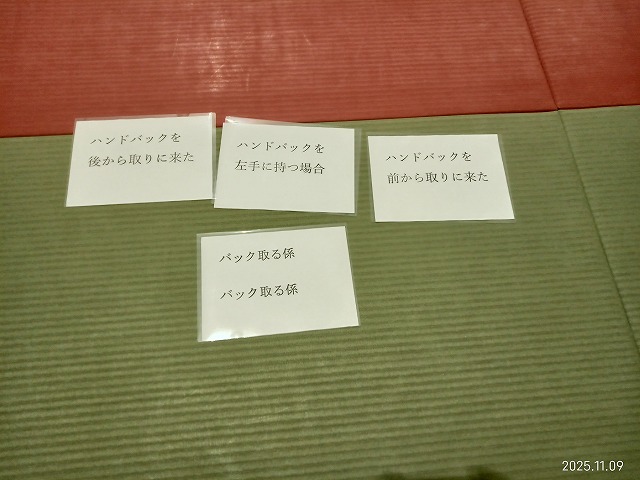 ハンドバックを
後から取りに来た
ハンドバックを
左手に持つ場合
ハンドバックを
前から取りに来た
バック取る係
バック取る係
2025.11.09